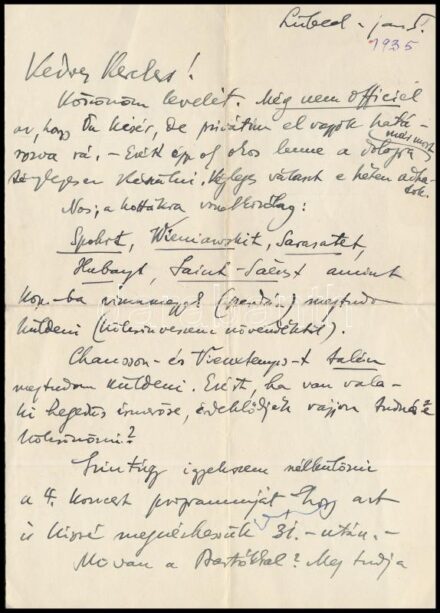 Lübeck - jan 5.
1935
Kedves Kerekes!
Köszönöm levelét. Még nem officiel
az, hogy Ön kisér, de privátim el vagyok hatá-
rozva rá. - Ezért épp of okos lenne a dologra
már most
készülni. Végleges választ e héten adha-
tok.
Nos, a kottákra vonatkozólag:
Spohrt, Wieniawskit, Sarasatet,
Hubayt, Saint-Säenst amint
Kop.-ba visszamegyek (szerdán) meg tudom
küldeni (kölcsönveszem növendéktől).
Chausson- és Vieuxtemps-t talán
meg tudom küldeni. Ezért, ha van vala-
ki hegedüs ismerőse, érdeklődjék vajjon tudná-e
kölcsönözni?
Szintúgy igyekszem nélkülözni
a 4. koncert programmját hogy azt
is Kissé megnézhessük 31. - után. -
Mi van a Bartókkal? Meg tudja